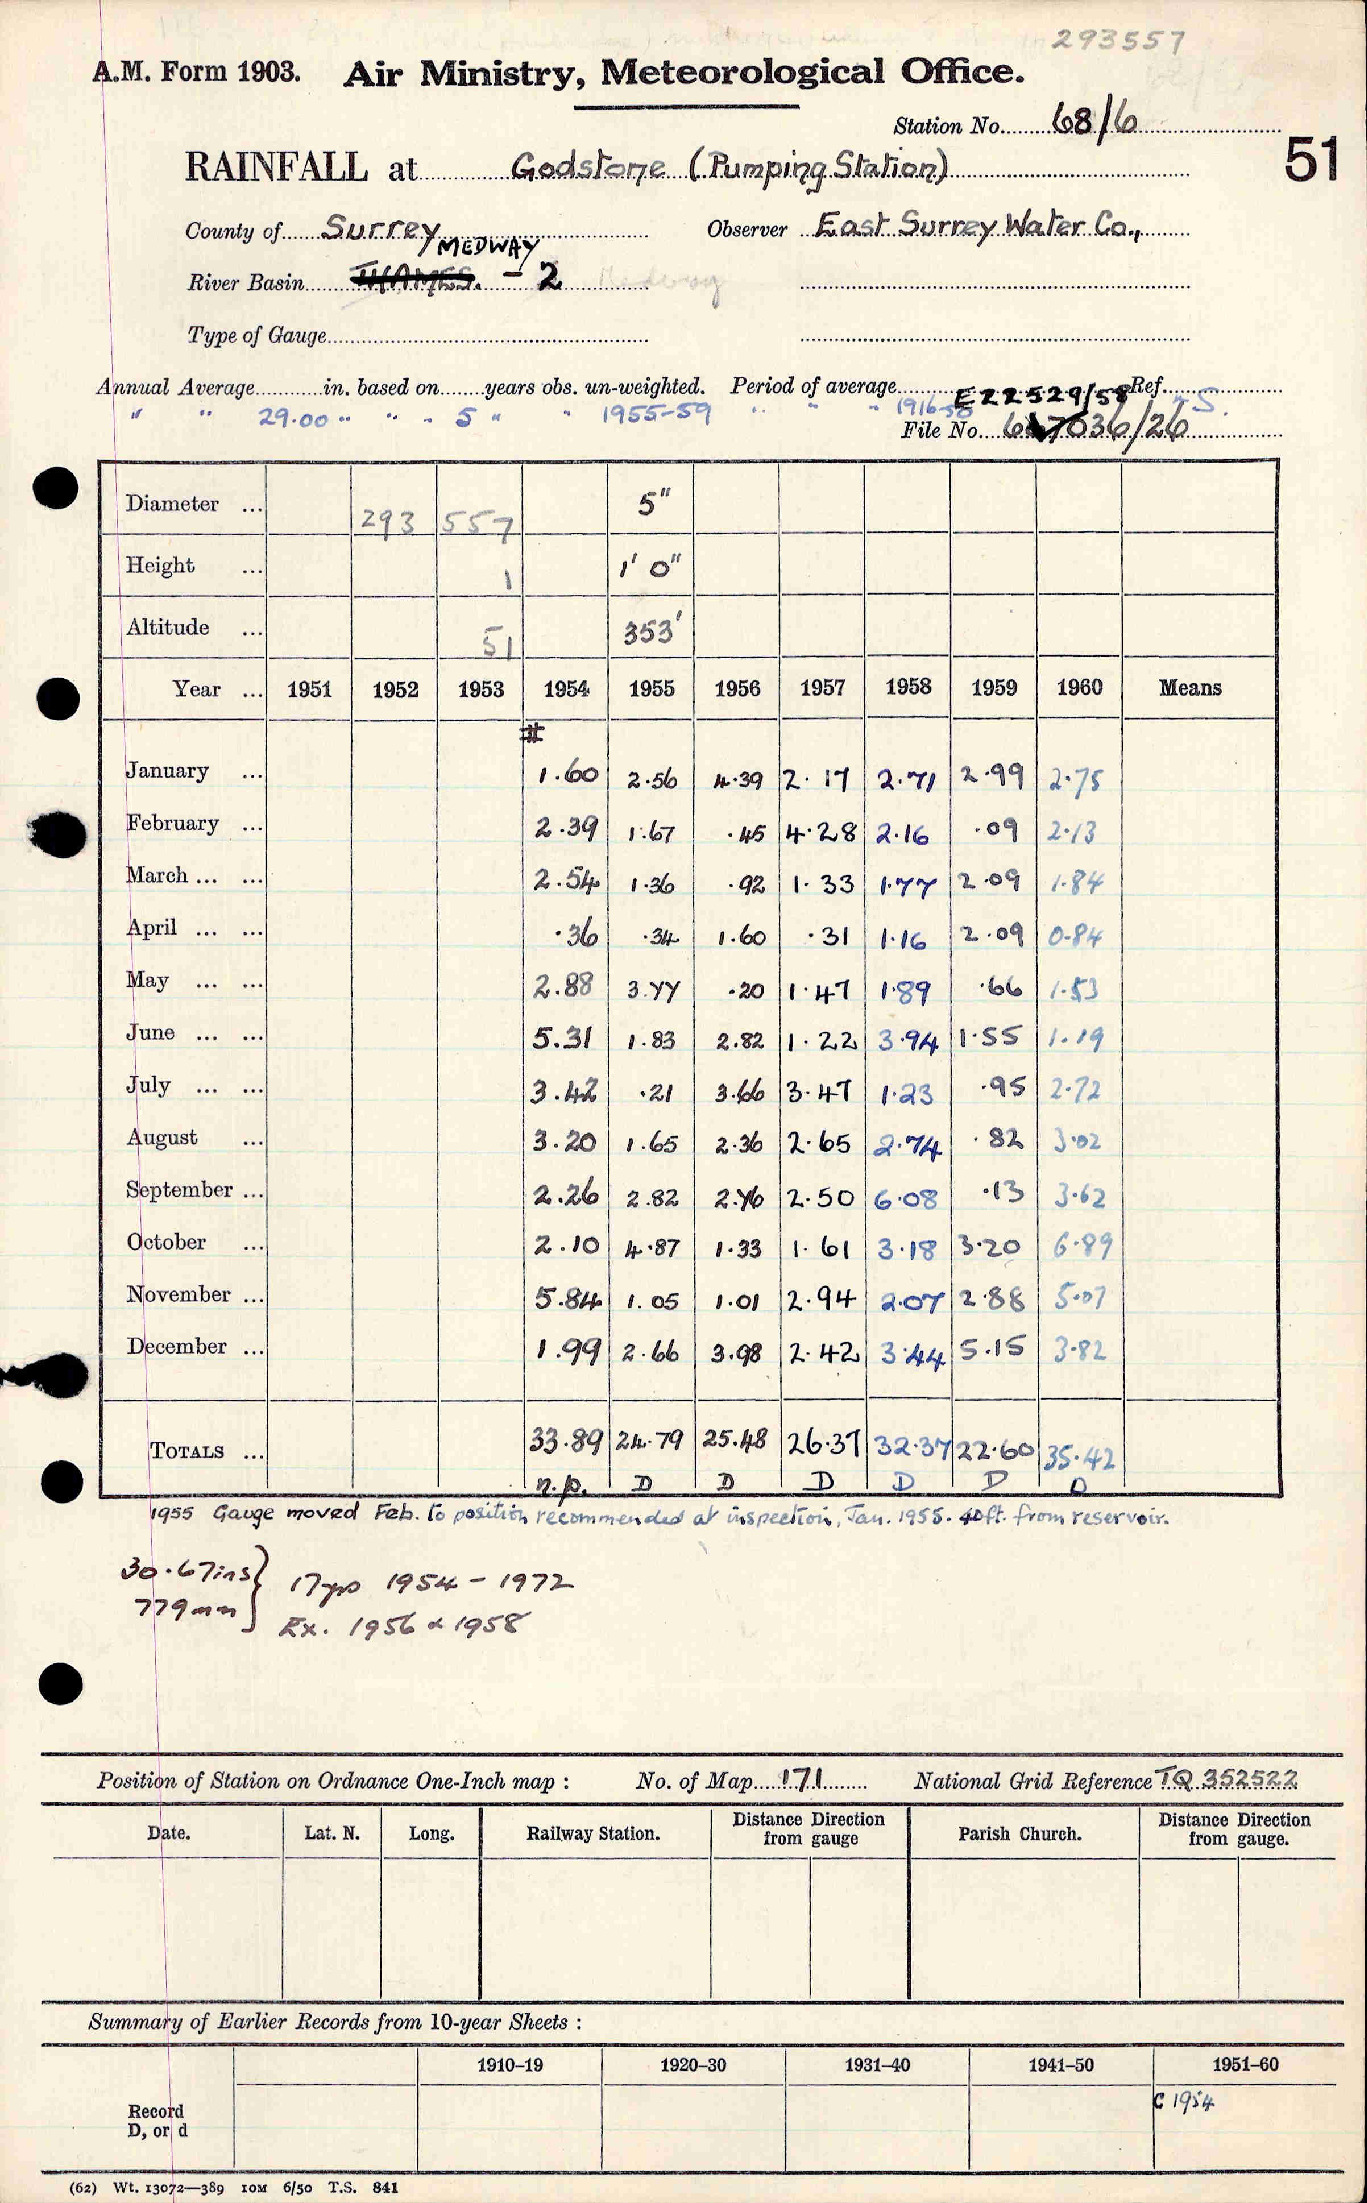 293557
A.M. Form 1903. Air Ministry, Meteorological Office.
Station No. 68/6
51
RAINFALL at Godstone (Pumping Station)
County of Surrey Observer East Surrey Water Co.,
MEDWAY
River Basin THAMES. - 2 Medway
Type of Gauge
Annual Average in. based on years obs. un-weighted. Period of average E22529/58 Ref.
" " 29.00 " " " 5 " " 1955-59 " " " 1916-50 S.
File No. 7036/26
Diameter ... 293 557 5"
Height ... 1 1' 0"
Altitude ... 51 353'
Year ... 1951 1952 1953 1954 1955 1956 1957 1958 1959 1960 Means
#
January ... 1.60 2.56 4.39 2.17 2.71 2.99 2.75
February ... 2.39 1.67 .45 4.28 2.16 .09 2.13
March ... ... 2.54 1.36 .92 1.33 1.77 2.09 1.84
April ... ... .36 .34 1.60 .31 1.16 2.09 0.84
May ... ... 2.88 3.77 .20 1.47 1.89 .66 1.53
June ... ... 5.31 1.83 2.82 1.22 3.94 1.55 1.19
July ... ... 3.42 .21 3.66 3.47 1.23 .95 2.72
August ... 3.20 1.65 2.36 2.65 2.74 .82 3.02
September ... 2.26 2.82 2.76 2.50 6.08 .13 3.62
October ... 2.10 4.87 1.33 1.61 3.18 3.20 6.89
November ... 5.84 1.05 1.01 2.94 2.07 2.88 5.07
December ... 1.99 2.66 3.98 2.42 3.44 5.15 3.82
TOTALS ... 33.89 24.79 25.48 26.37 32.37 22.60 35.42
n.p. D D D D D D
1955 Gauge moved Feb. to position recommended at inspection, Jan. 1955. 40ft. from reservoir.
30.67ins } 17yrs 1954 - 1972
779mm } Ex. 1956 & 1958
Position of Station on Ordnance One-Inch map : No. of Map 171 National Grid Reference TQ 352522
Date. Lat. N. Long. Railway Station. Distance Direction from gauge Parish Church. Distance Direction from gauge.
Summary of Earlier Records from 10-year Sheets :
1910-19 1920-30 1931-40 1941-50 1951-60
Record D, or d C 1954
(62) Wt. 13072—389 10M 6/50 T.S. 841